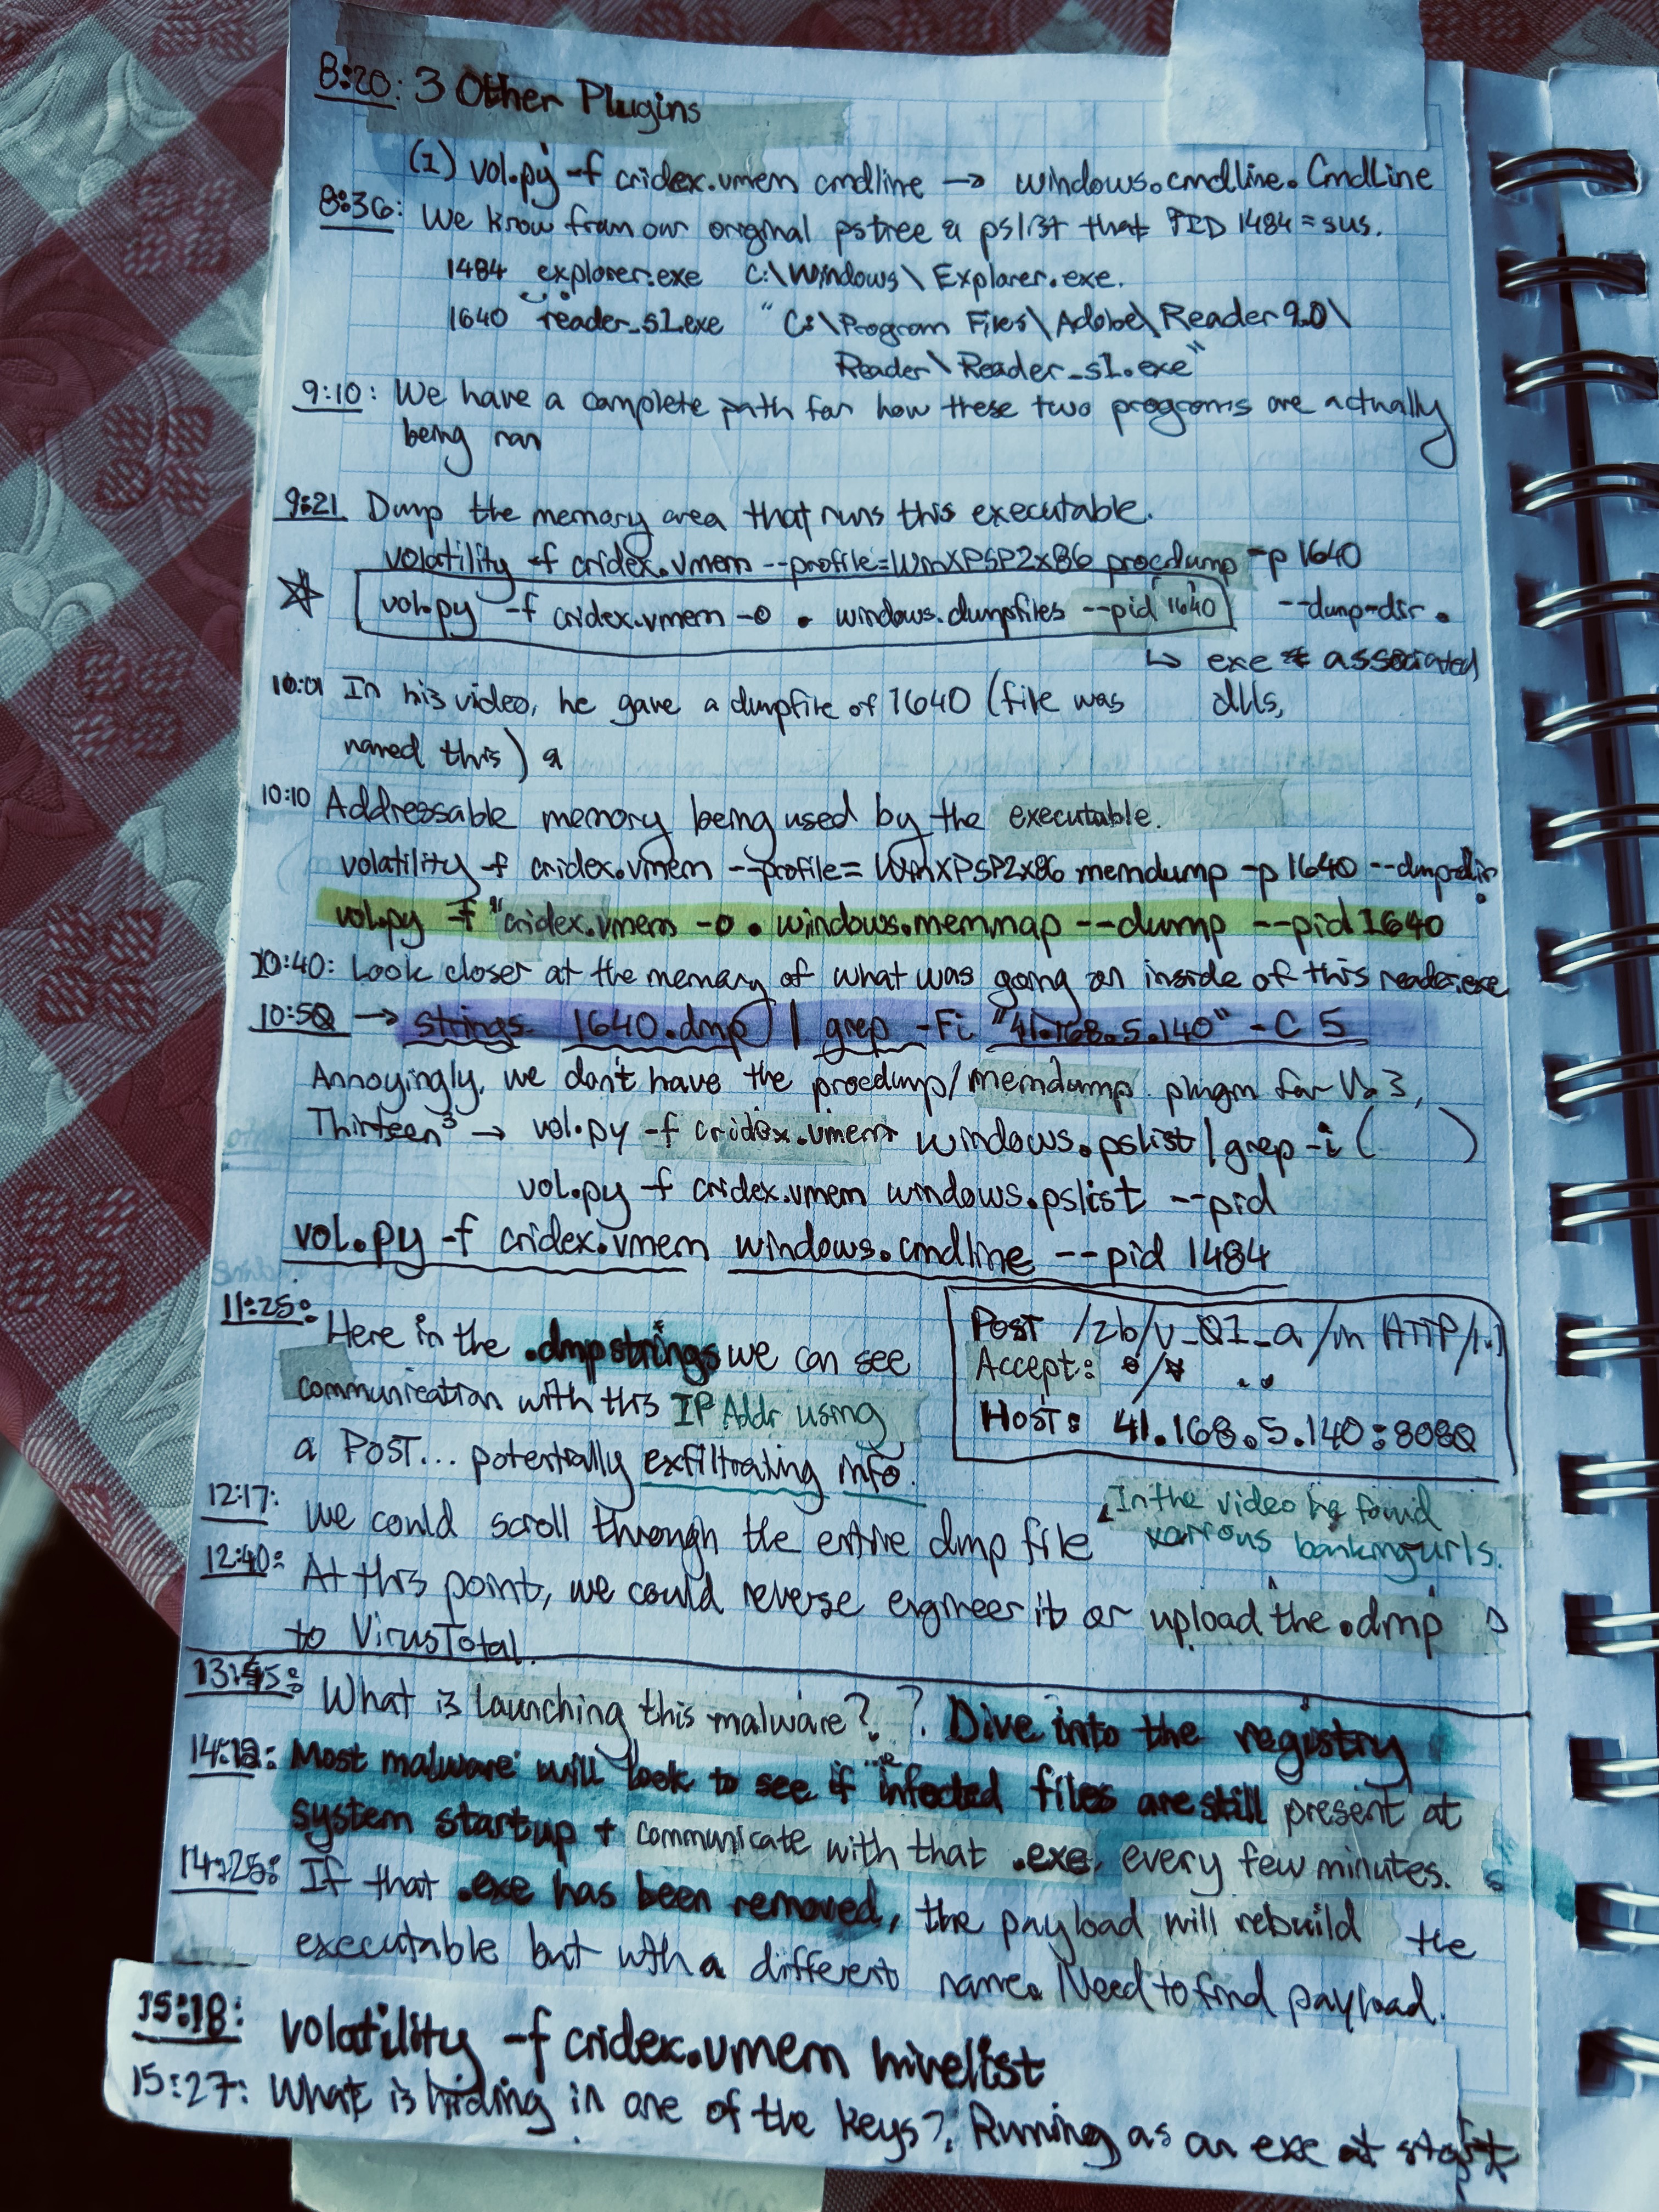 8:20: 3 Other Plugins
(1) vol.py -f cridex.vmem cmdline → windows.cmdline.CmdLine
8:36: We know from our original pstree & pslist that PID 1484 = sus.
1484 explorer.exe C:\Windows\Explorer.exe.
1640 reader_sl.exe "C:\Program Files\Adobe\Reader 9.0\
Reader\Reader_sl.exe"
9:10: We have a complete path for how these two programs are actually
being ran
9:21 Dump the memory area that runs this executable.
volatility -f cridex.vmem --profile=WinXPSP2x86 procdump -p 1640
--dump-dir .
☆ vol.py -f cridex.vmem -o . windows.dumpfiles --pid 1640
↳ exe & associated
dlls,
10:01 In his video, he gave a dumpfile of 1640 (file was
named this) &
10:10 Addressable memory being used by the executable.
volatility -f cridex.vmem --profile=WinXPSP2x86 memdump -p 1640 --dmp-dir .
vol.py -f "cridex.vmem -o . windows.memmap --dump --pid 1640
10:40: Look closer at the memory of what was going on inside of this reader.exe
10:50 → strings 1640.dmp | grep -Fi "41.168.5.140" -C 5
Annoyingly, we don't have the procdump/memdump plugin for V.3,
Thirteen³ → vol.py -f cridex.vmem windows.pslist | grep -i ( )
vol.py -f cridex.vmem windows.pslist --pid
vol.py -f cridex.vmem windows.cmdline --pid 1484
11:25: Here in the .dmp strings we can see
communication with this IP Addr using
a POST... potentially exfiltrating info.
Post /zb/v_01_a/in HTTP/1.1
Accept: */* ..
Host: 41.168.5.140:8080
12:17: We could scroll through the entire dmp file
In the video he found
various banking urls.
12:40: At this point, we could reverse engineer it or upload the .dmp
to VirusTotal.
13:45: What is launching this malware? ? Dive into the registry
14:12: Most malware will look to see if the infected files are still present at
system startup + communicate with that .exe, every few minutes.
14:25: If that .exe has been removed, the payload will rebuild the
executable but with a different name. Need to find payload.
15:18: volatility -f cridex.vmem hivelist
15:27: What is hiding in one of the keys? Running as an exe at start